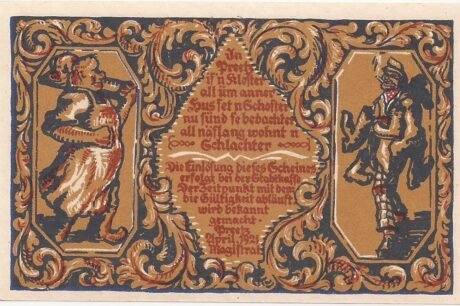 In
Preetz
is'n Kloster
all üm anner
Hus set'n Schoster
nu sünd se bedachter
all näslang wohnt 'n
Schlachter
Die Einlösung dieses Scheines
erfolgt bei der Stadtkasse
Der Zeitpunkt mit dem
die Gültigkeit abläuft
wird bekannt
gemacht.
Preetz
April 1921
Magistrat